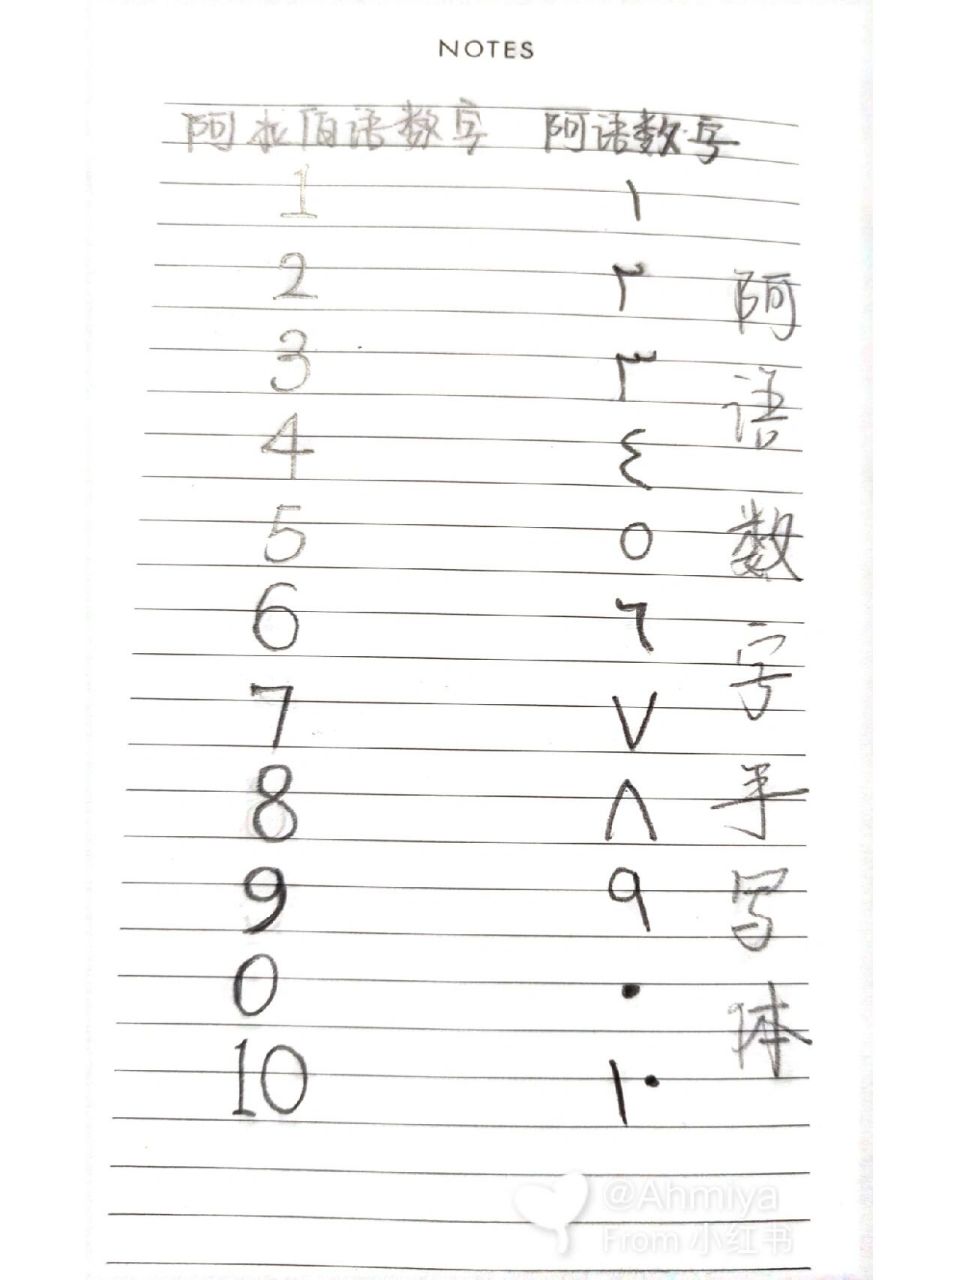 NOTES
阿拉伯语数字 阿语数字
1 ١
2 ٢
3 ٣
4 ٤
5 ٥
6 ٦
7 ٧
8 ٨
9 ٩
0 ٠
10 ١٠
阿语数字手写体
@Ahmiya
From 小红书